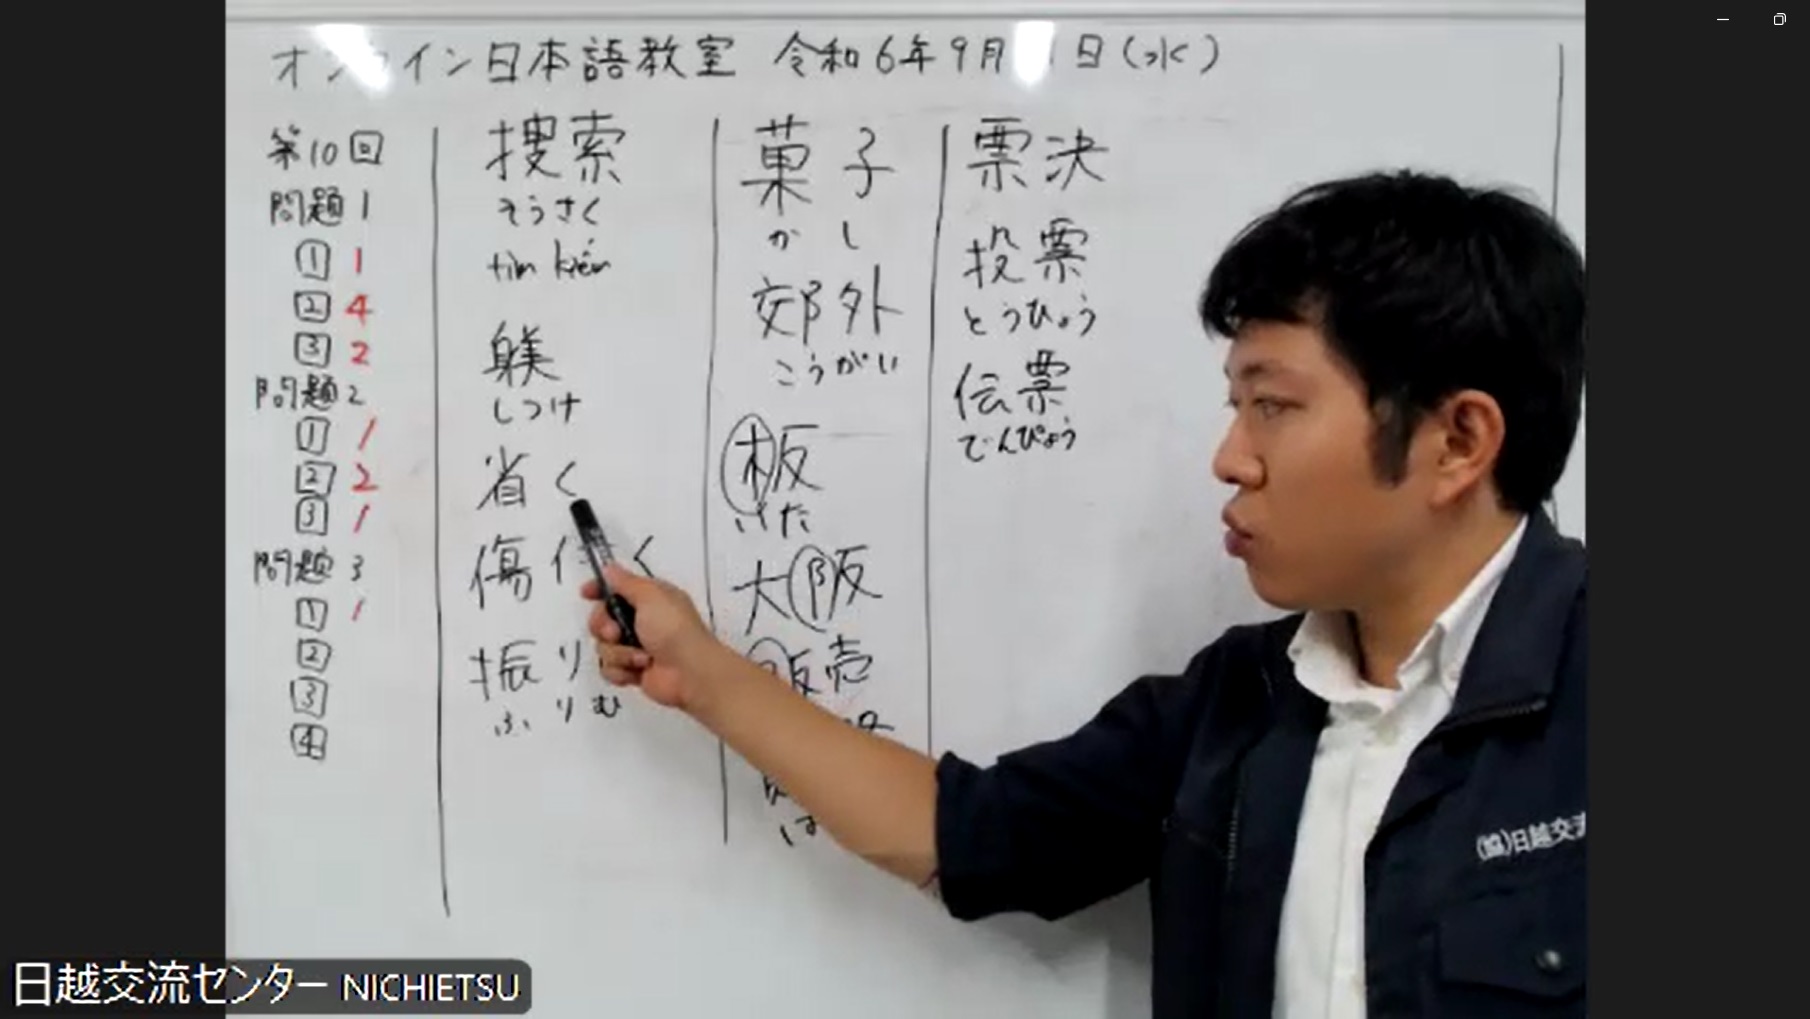 オンライン日本語教室 令和6年9月 1日(水)
第10回
問題1
1 1
2 4
3 2
問題2
1 1
2 2
3 1
問題3
1 1
2
3
4
捜索
そうさく
tìm kiếm
躾
しつけ
省く
傷付く
振り
ふりむ
菓子
かし
郊外
こうがい
板
いた
大阪
販売
票決
投票
とうひょう
伝票
でんぴょう
(協)日越交流
日越交流センター NICHIETSU